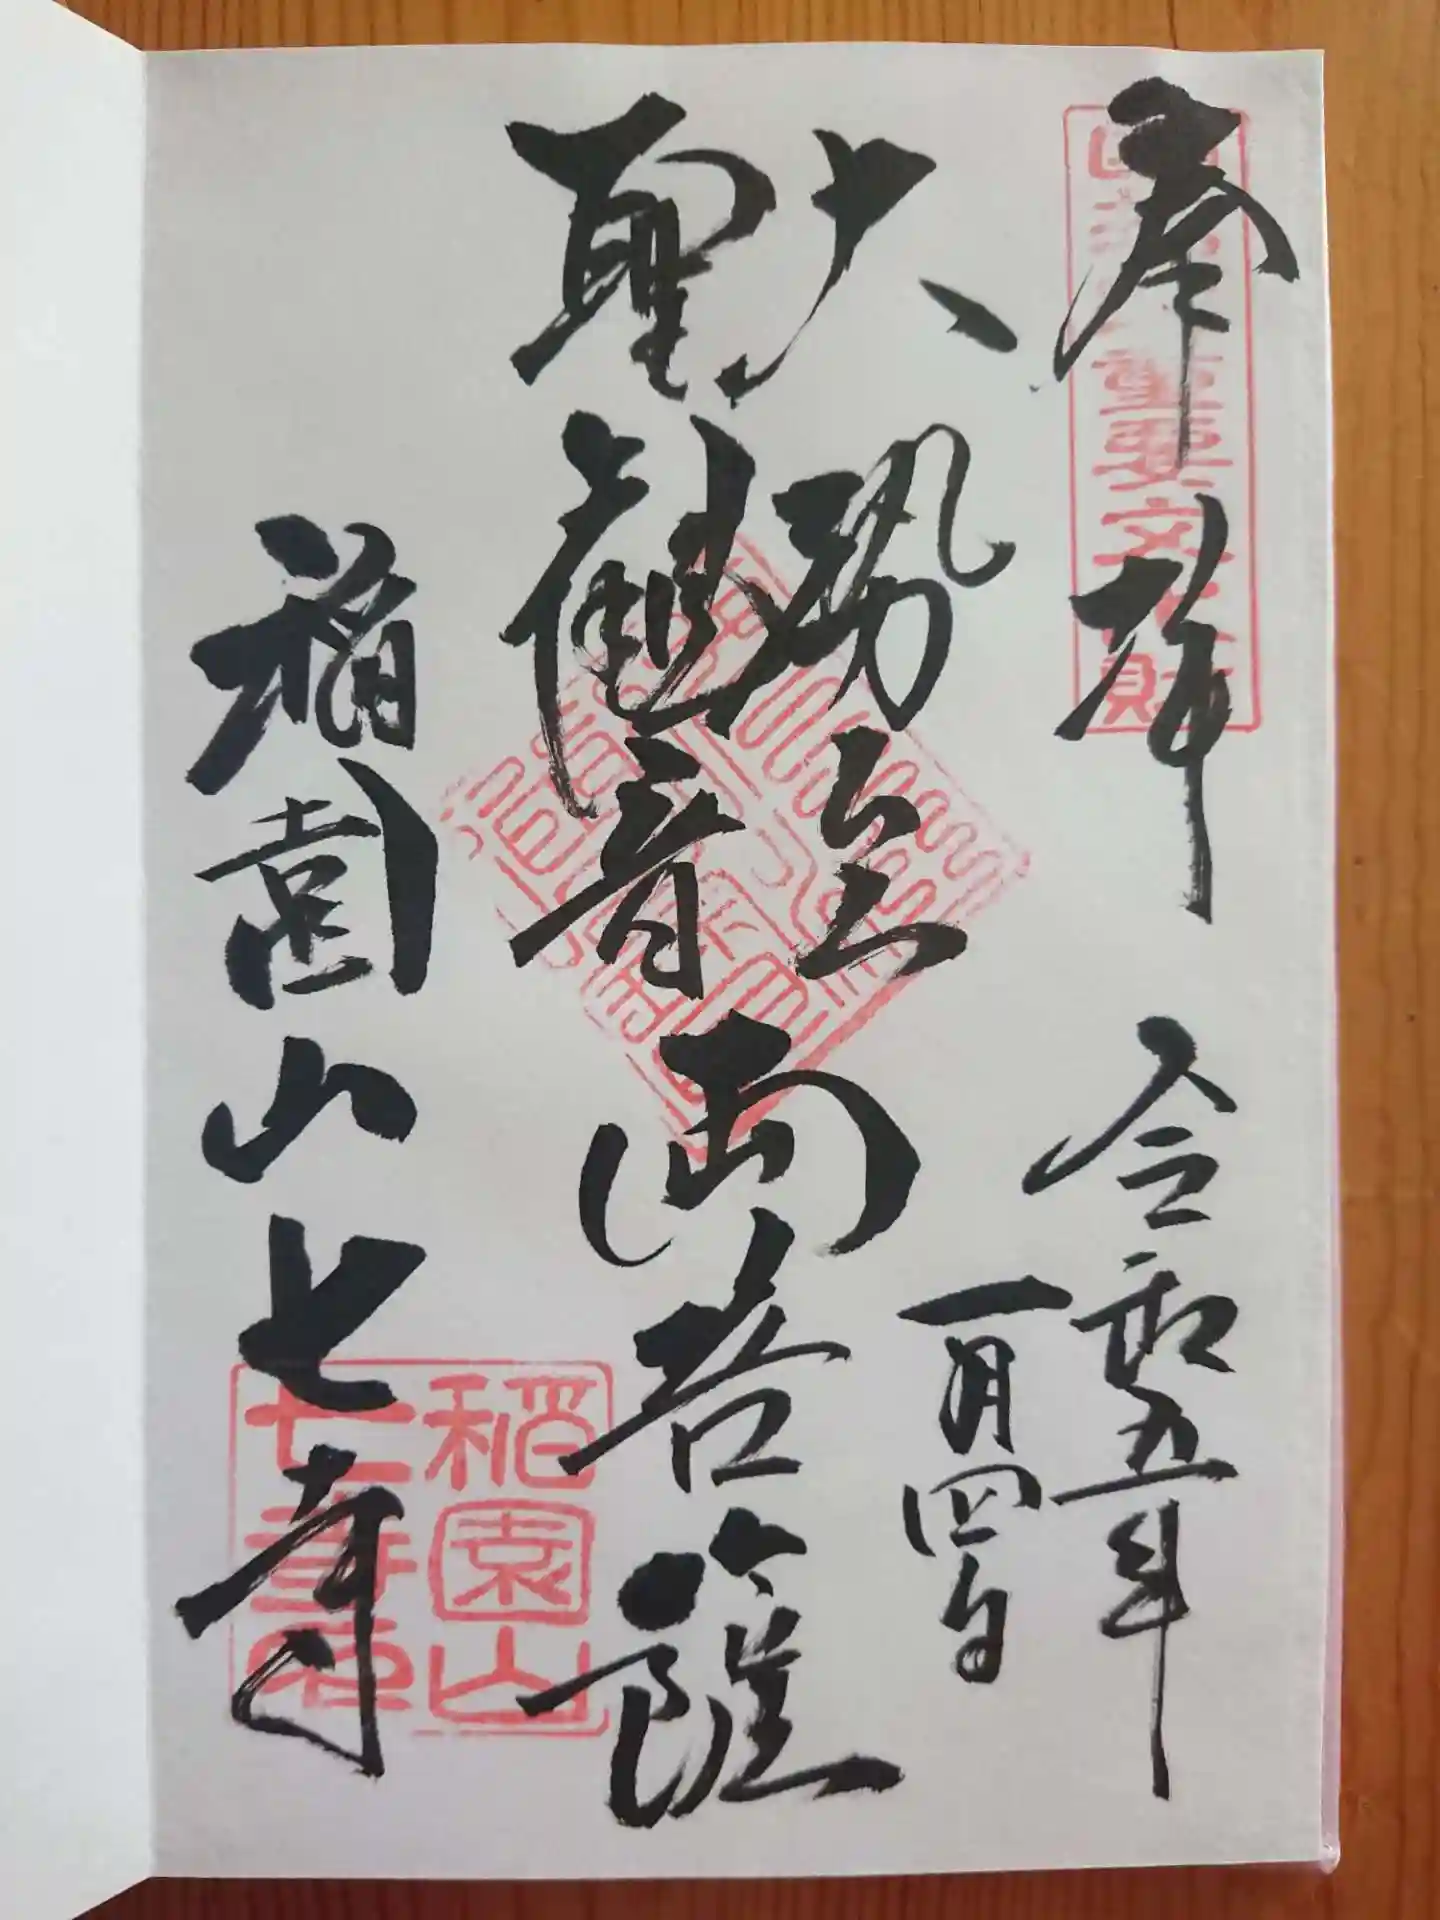 奉拝
令和五年
一月四日
大勢至
聖観音
両菩薩
稲園山七寺
重要文化財
稲園山
七寺印